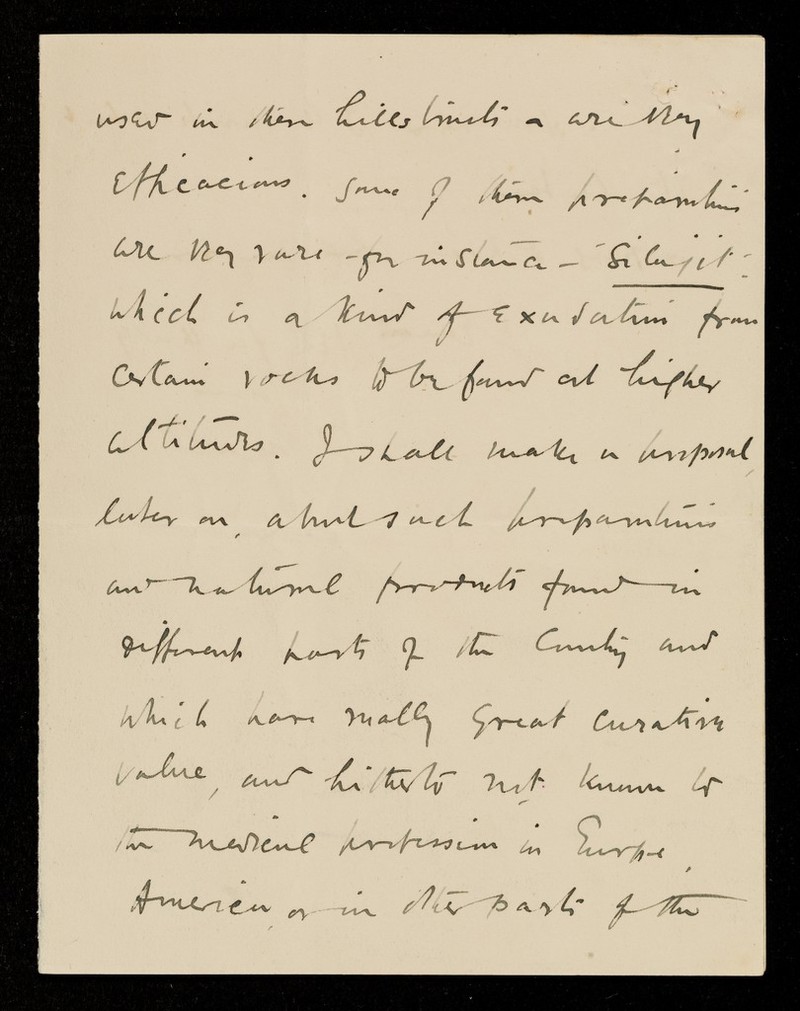 used in these hills tracts & are very
efficacious. Some of these preparations
are very rare - for instance - "Silajit"
which is a kind of exudation from
certain rocks to be found at higher
altitudes. I shall make a proposal,
later on, about such preparations
and natural products found in
different parts of the Country and
which have really great curative
value, and hitherto not known to
the medical profession in Europe,
America, or in other parts of the